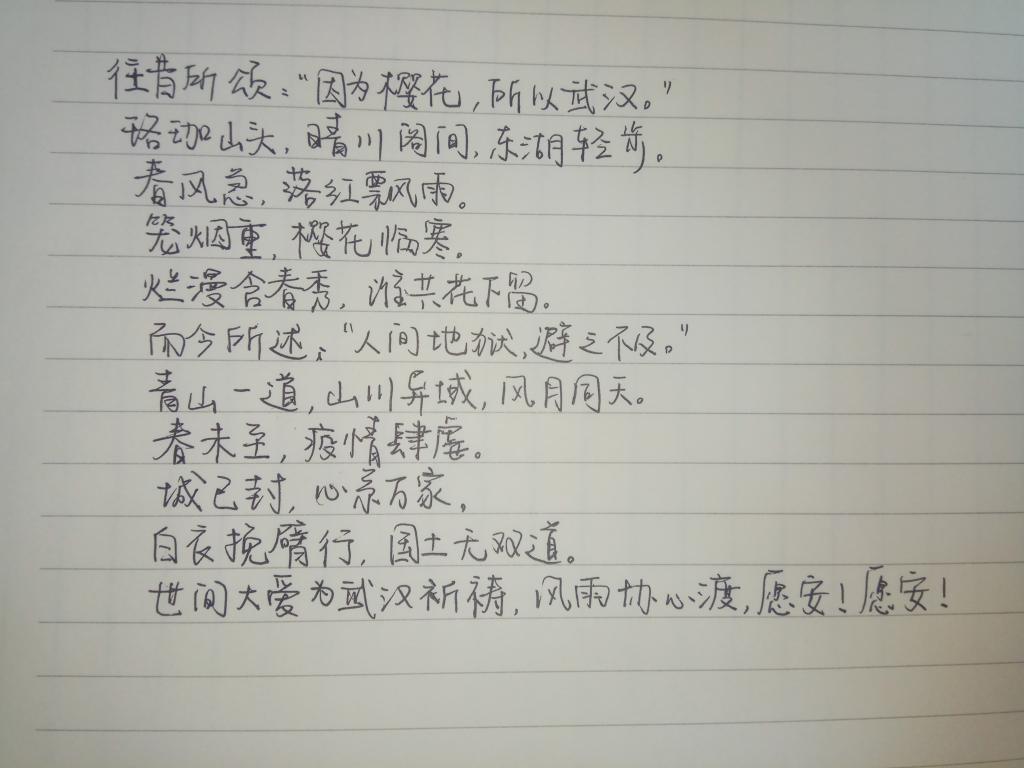 往昔所颂：“因为樱花，所以武汉。”
珞珈山头，晴川阁间，东湖轻步。
春风急，落红飘风雨。
笼烟重，樱花临寒。
烂漫含春秀，谁共花下留。
而今所述：“人间地狱，避之不及。”
青山一道，山川异域，风月同天。
春未至，疫情肆虐。
城已封，心系万家。
白衣挽臂行，国士无双道。
世间大爱为武汉祈祷，风雨协心渡，愿安！愿安！